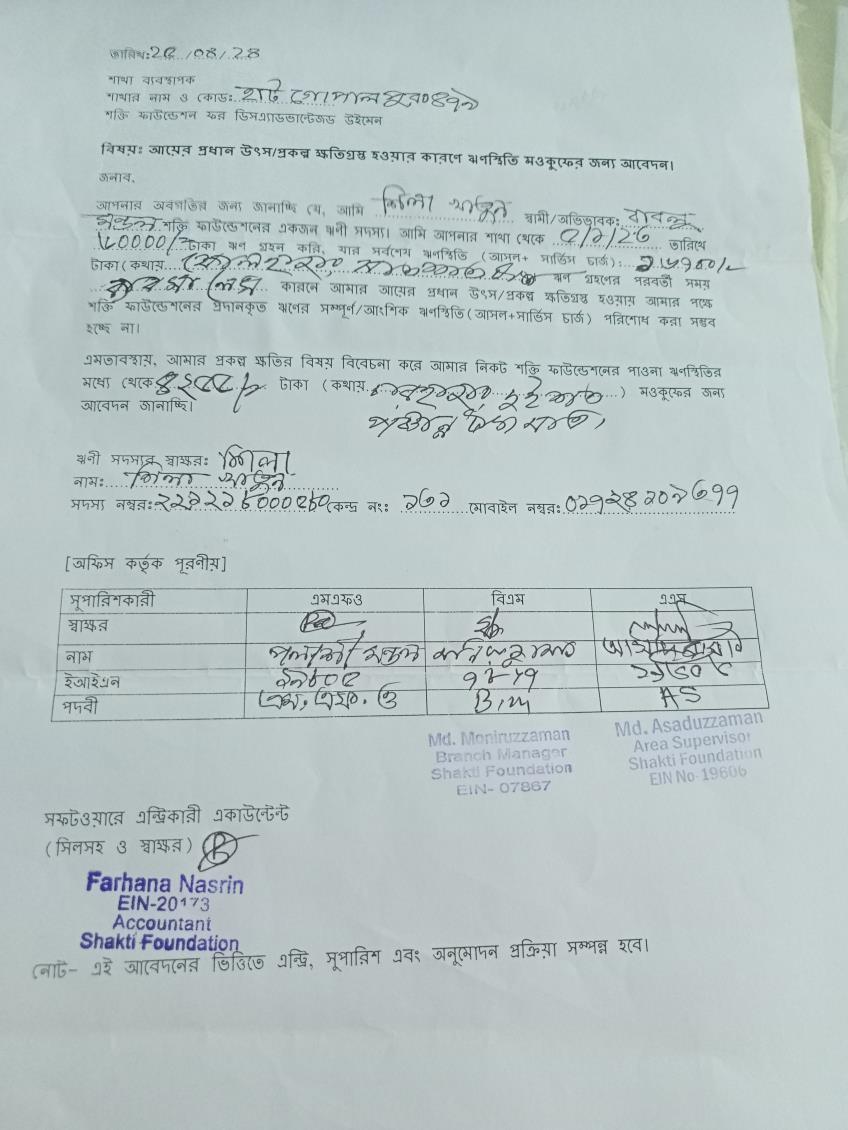 তারিখ:
শাখা ব্যবস্থাপক
শাখার নাম ও কোড: হাট গোপালপুর ০৪৭৯
শক্তি ফাউন্ডেশন ফর ডিসএ্যাডভান্টেজড উইমেন
বিষয়: আয়ের প্রধান উৎস/প্রকল্প ক্ষতিগ্রস্ত হওয়ার কারণে ঋণস্থিতি মওকুফের জন্য আবেদন।
জনাব,
আপনার অবগতির জন্য জানাচ্ছি যে, আমি শিলা খাতুন স্বামী/অভিভাবক:
মন্ডল শক্তি ফাউন্ডেশনের একজন ঋনী সদস্য। আমি আপনার শাখা থেকে তারিখে
টাকা ঋন গ্রহন করি, যার সর্বশেষ ঋনস্থিতি (আসল+ সার্ভিস চার্জ):
টাকা (কথায় ঋন গ্রহণের পরবর্তী সময়
কারনে আমার আয়ের প্রধান উৎস/প্রকল্প ক্ষতিগ্রস্ত হওয়ায় আমার পক্ষে
শক্তি ফাউন্ডেশনের প্রদানকৃত ঋণের সম্পূর্ণ/আংশিক ঋনস্থিতি (আসল+সার্ভিস চার্জ) পরিশোধ করা সম্ভব
হচ্ছে না।
এমতাবস্থায়, আমার প্রকল্প ক্ষতির বিষয় বিবেচনা করে আমার নিকট শক্তি ফাউন্ডেশনের পাওনা ঋনস্থিতির
মধ্যে থেকে টাকা (কথায় দুই শত ) মওকুফের জন্য
আবেদন জানাচ্ছি।
ঋনী সদস্যর স্বাক্ষর: শিলা
নাম: শিলা খাতুন
সদস্য নম্বর: কেন্দ্র নং: মোবাইল নম্বর:
[অফিস কর্তৃক পূরনীয়]
সুপারিশকারী এমএফও বিএম এএস
স্বাক্ষর
নাম মন্ডল মনিরুজ্জামান
ইআইএন
পদবী এম, এফ. ও B.M AS
Md. Moniruzzaman
Branch Manager
Shakti Foundation
EIN- 07867
Md. Asaduzzaman
Area Supervisor
Shakti Foundation
EIN No-19606
সফটওয়ারে এন্ট্রিকারী একাউন্টেন্ট
(সিলসহ ও স্বাক্ষর)
Farhana Nasrin
EIN-20173
Accountant
Shakti Foundation
নোট- এই আবেদনের ভিত্তিতে এন্ট্রি, সুপারিশ এবং অনুমোদন প্রক্রিয়া সম্পন্ন হবে।